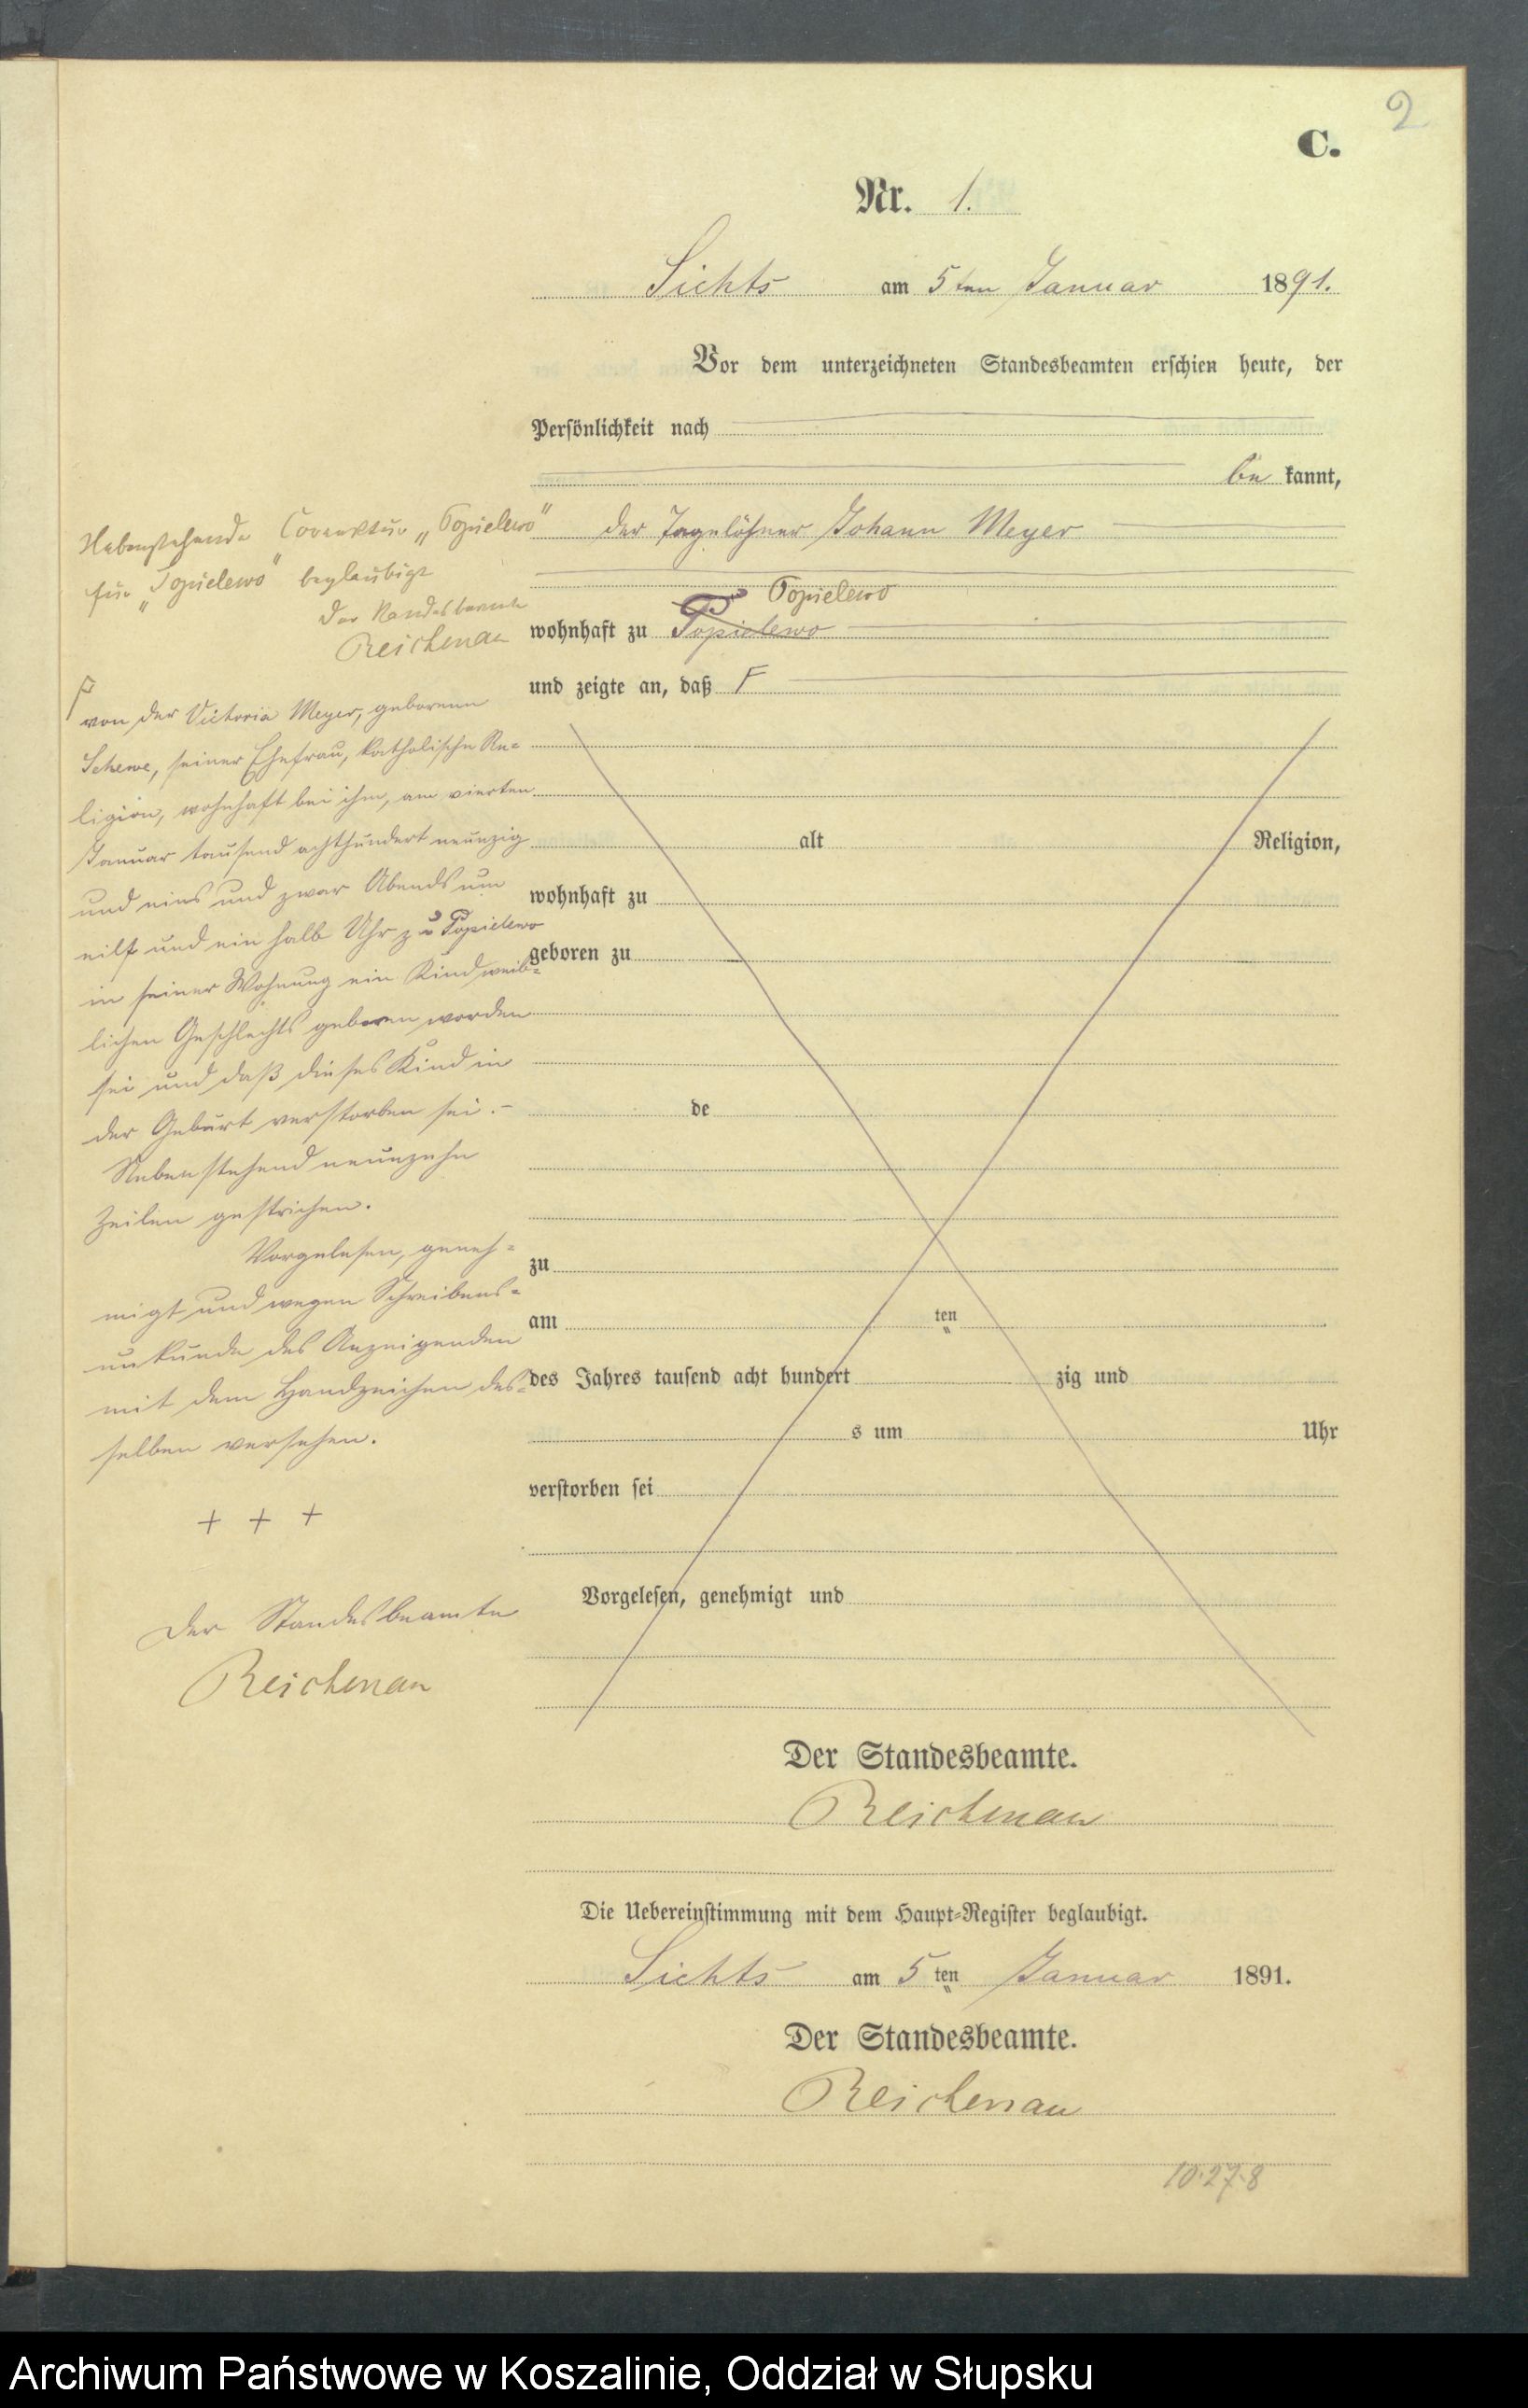 2
C.
Nr. 1.
Lichts am 5ten Januar 1891.
Vor dem unterzeichneten Standesbeamten erschien heute, der
Persönlichkeit nach
be kannt,
der Tagelöhner Johann Meyer
Topielewo
wohnhaft zu Popielewo
und zeigte an, daß
Nebenstehende Correktur „Popielewo"
für „Topielewo" beglaubigt
Der Standesbeamte
Reichenau
von der Victoria Meyer, geborenen
Schewe, seiner Ehefrau, katholischer Re=
ligion, wohnhaft bei ihm, am vierten
Januar tausend achthundert neunzig
und eins und zwar Abends um
eilf und ein halb Uhr zu Popielewo
in seiner Wohnung ein Kind weib=
lichen Geschlechts geboren worden
sei und daß dieses Kind in
der Geburt verstorben sei.-
Nebenstehend neunzehn
Zeilen gestrichen.
Vorgelesen, geneh=
migt und wegen Schreibens=
unkunde des Anzeigenden
mit dem Handzeichen des=
selben versehen.
+ + +
Der Standesbeamte
Reichenau
alt Religion,
wohnhaft zu
geboren zu
de
zu
am ten
des Jahres tausend acht hundert zig und
s um Uhr
verstorben sei
Vorgelesen, genehmigt und
Der Standesbeamte.
Reichenau
Die Uebereinstimmung mit dem Haupt=Register beglaubigt.
Lichts am 5 ten Januar 1891.
Der Standesbeamte.
Reichenau
10.27.8
Archiwum Państwowe w Koszalinie, Oddział w Słupsku